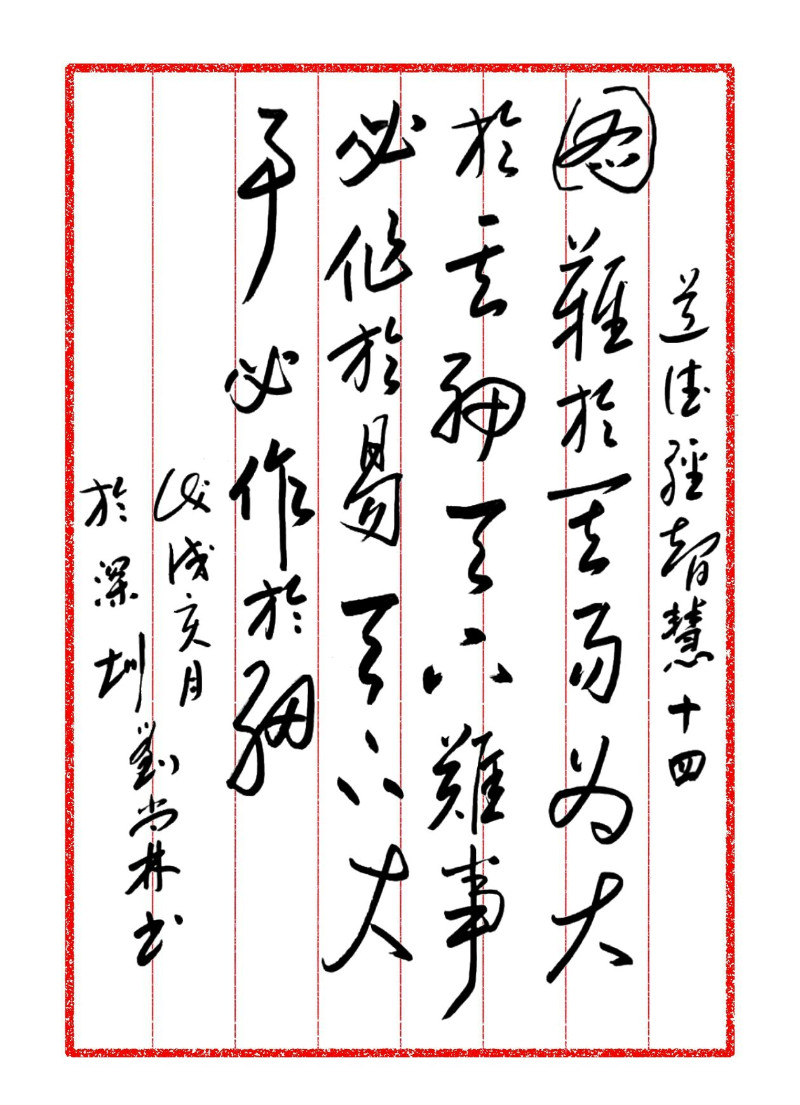 道德經智慧十四
图難於其易為大
於其細天下難事
必作於易天下大
事必作於細
戊戌亥月
於深圳
劉尚林书